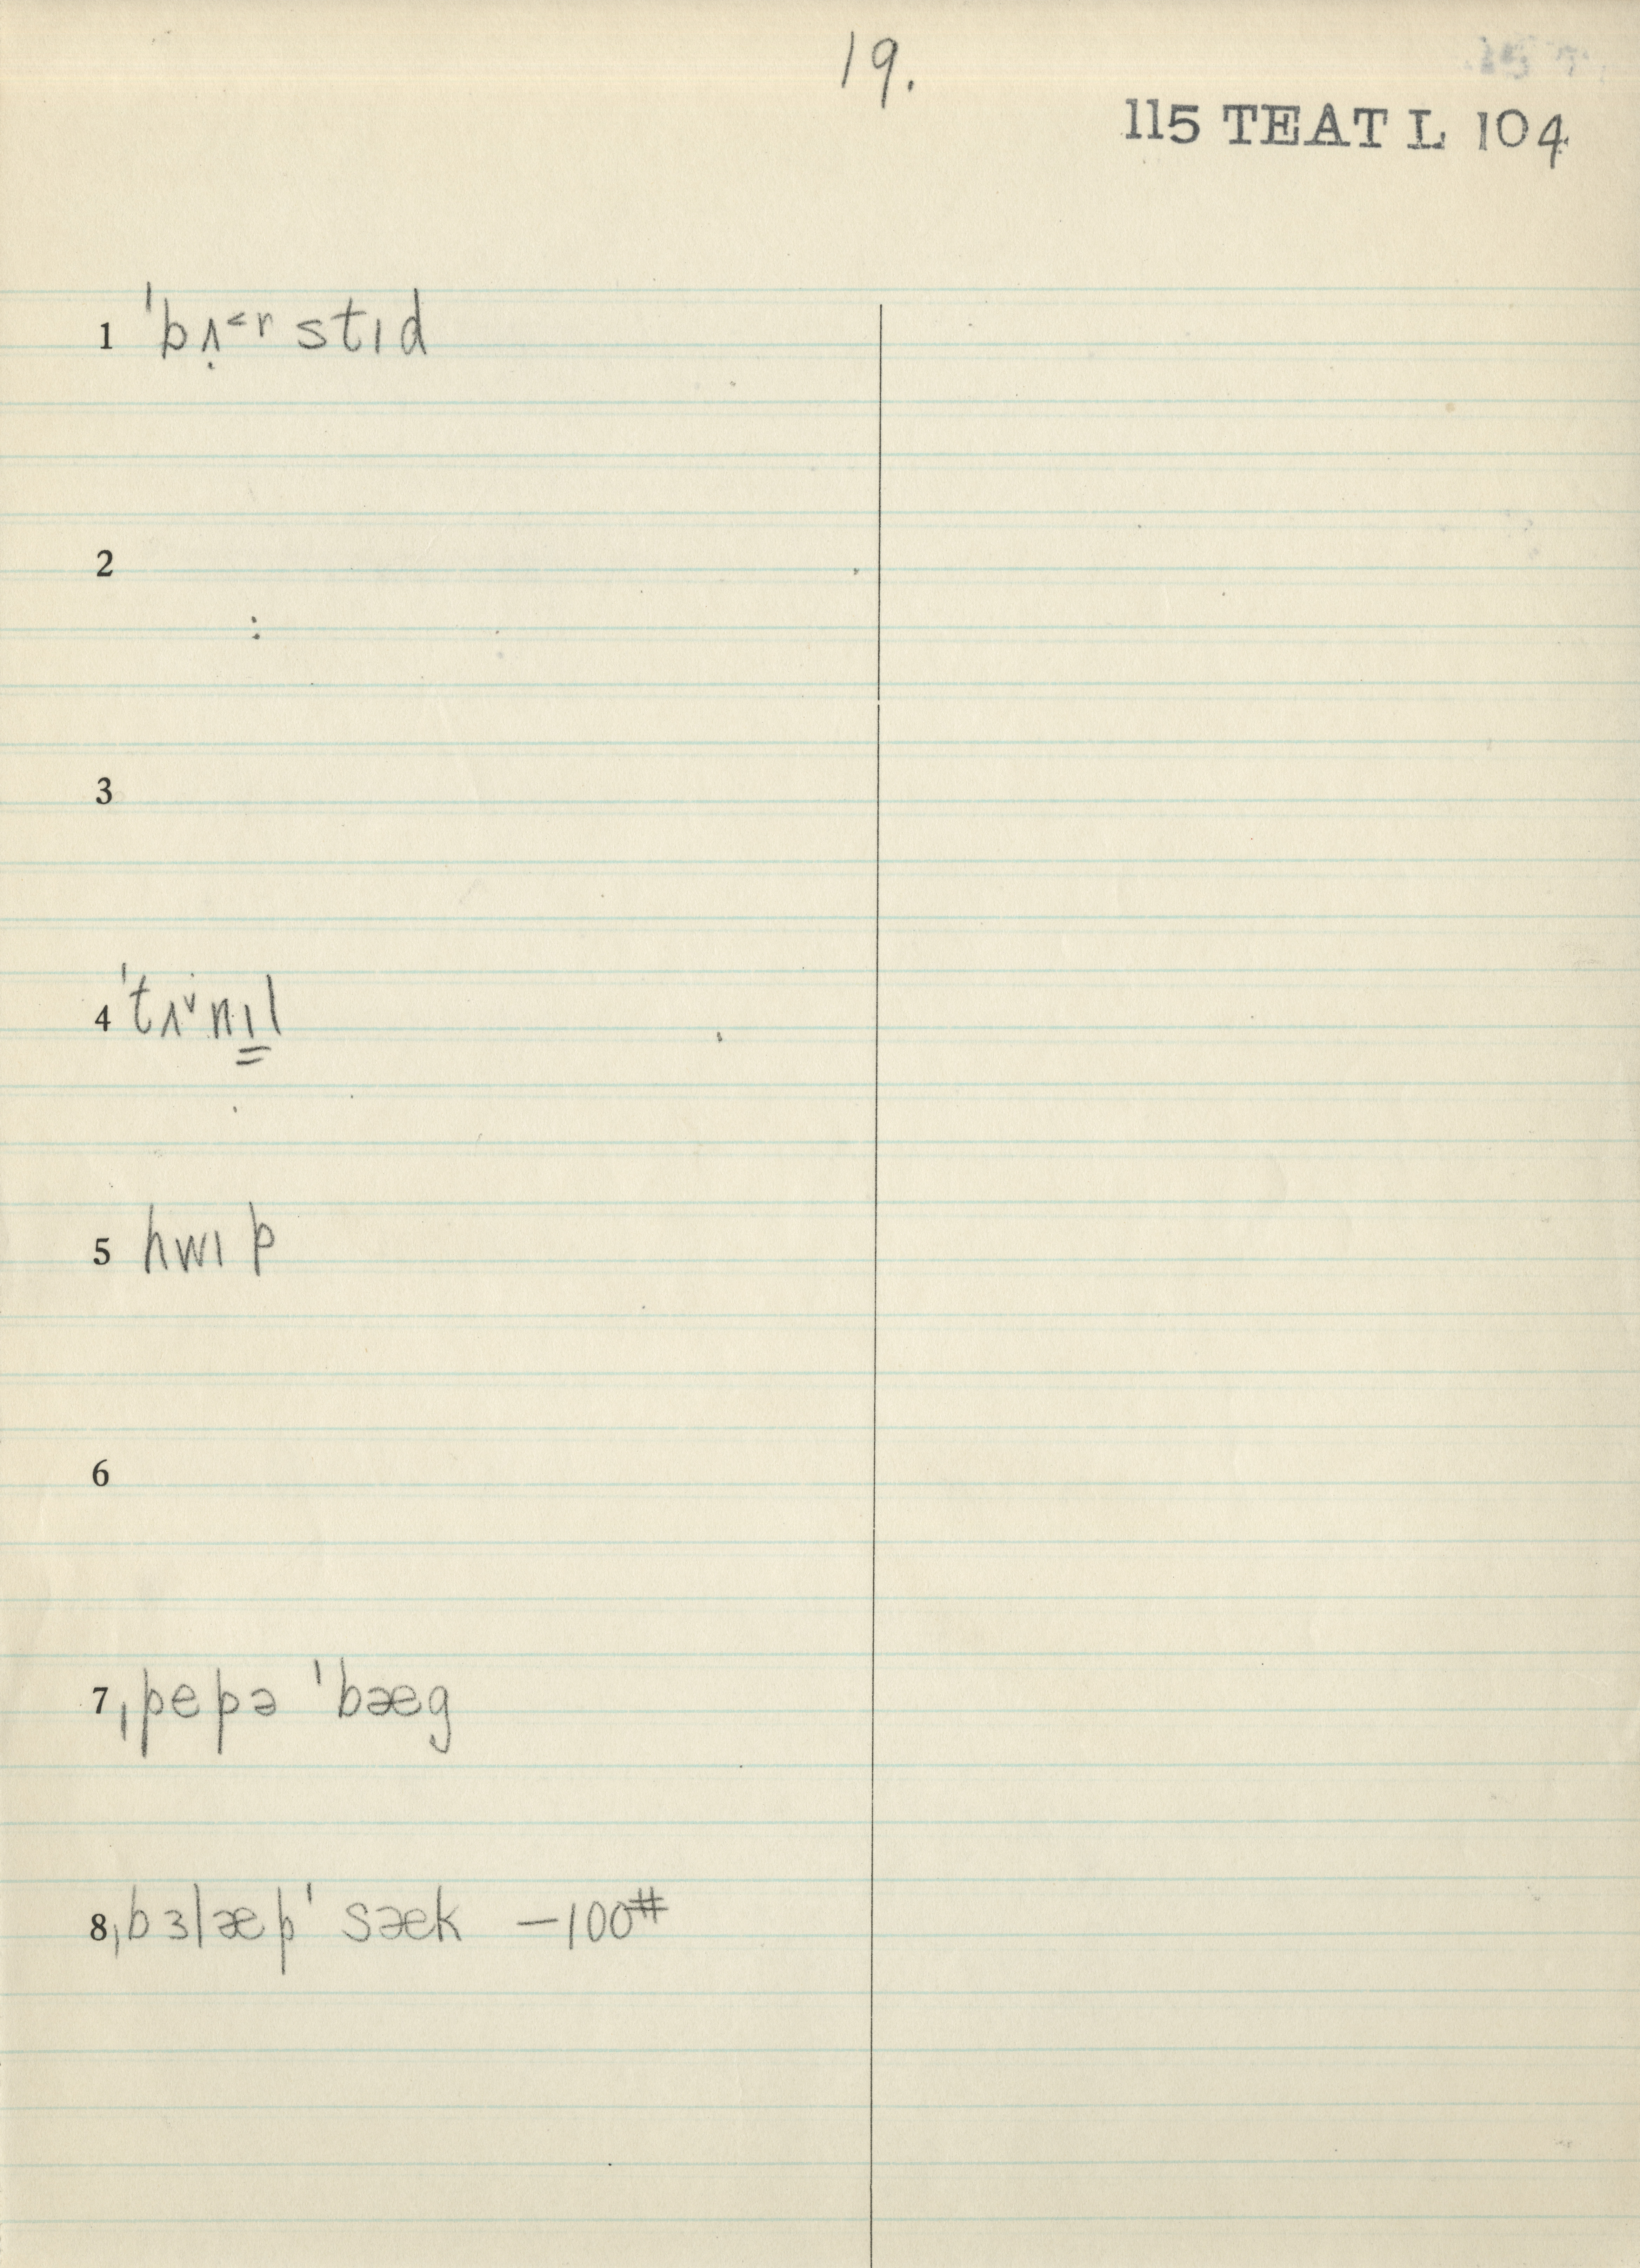 19.
115 TEAT L 104
1 ˈbʌ̣˂ʳ stɪd
2
3
4 ˈtʌ˅nɪ̳l
5 hwɪp
6
7 ˌpepə ˈbæg
8 ˌbɜlæpˈ sæk –100#